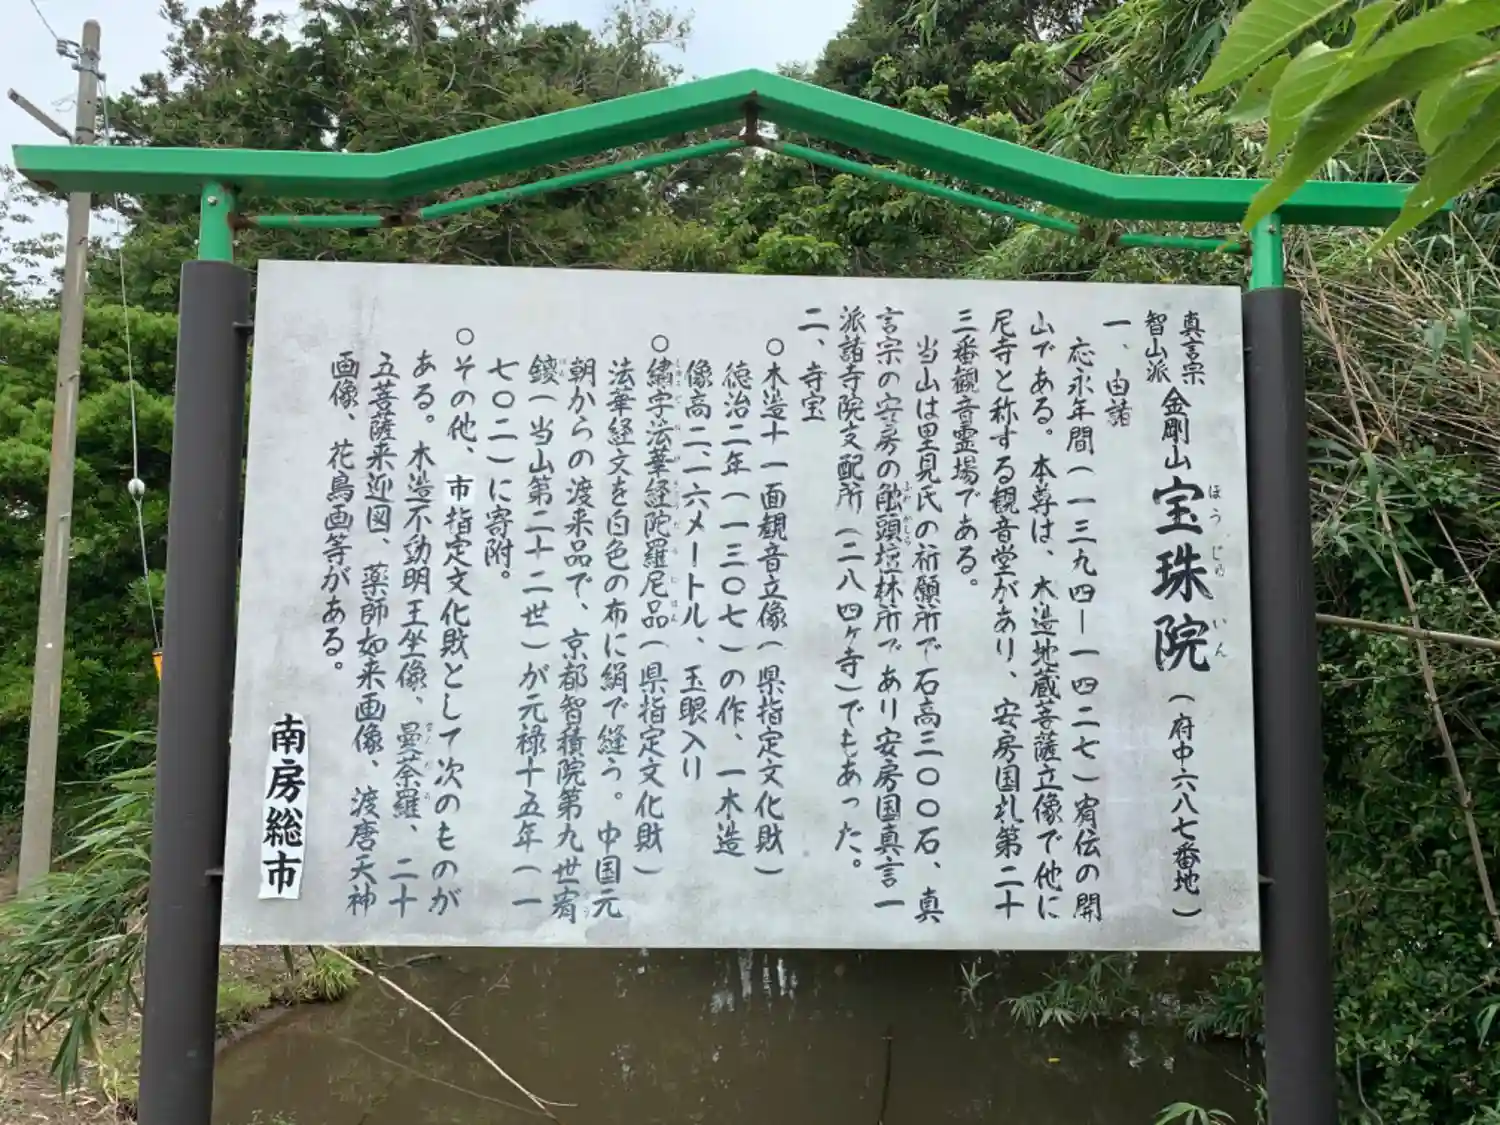 真言宗
智山派
金剛山 宝珠院（府中六八七番地）
ほう じゅ いん
一、由諸
応永年間（一三九四―一四二七）宥伝の開
山である。本尊は、木造地蔵菩薩立像で他に
尼寺と称する観音堂があり、安房国札第二十
三番観音霊場である。
当山は里見氏の祈願所で石高三〇〇石、真
言宗の安房の触頭壇林所であり安房国真言一
派諸寺院支配所（二八四ヶ寺）でもあった。
二、寺宝
〇木造十一面観音立像（県指定文化財）
徳治二年（一三〇七）の作、一木造
像高二、一六メートル、玉眼入り
〇繍字法華経陀羅尼品（県指定文化財）
法華経文を白色の布に絹で縫う。中国元
朝からの渡来品で、京都智積院第九世宥
鑁（当山第二十二世）が元禄十五年（一
七〇二）に寄附。
〇その他、市指定文化財として次のものが
ある。木造不動明王坐像、曼荼羅、二十
五菩薩来迎図、薬師如来画像、渡唐天神
画像、花鳥画等がある。
南房総市